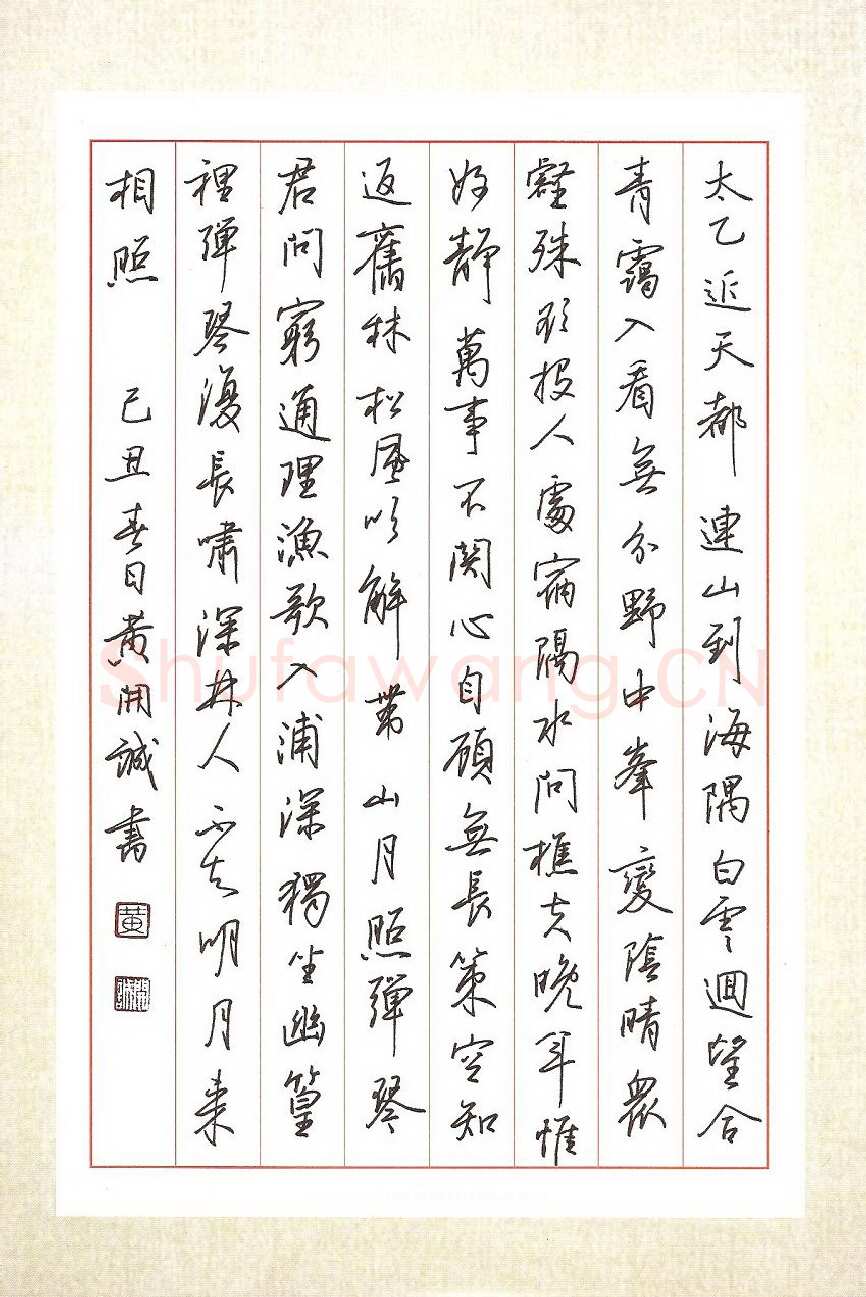 太乙近天都連山到海隅白雲迴望合
青靄入看無分野中峯變陰晴眾
壑殊欲投人處宿隔水問樵夫晚年惟
好靜萬事不関心自顧無長策空知
返舊林松風吹解帶山月照彈琴
君問窮通理漁歌入浦深獨坐幽篁
裡彈琴復長嘯深林人不知明月来
相照 己丑春日黃開誠書
黃
Shufawang.CN